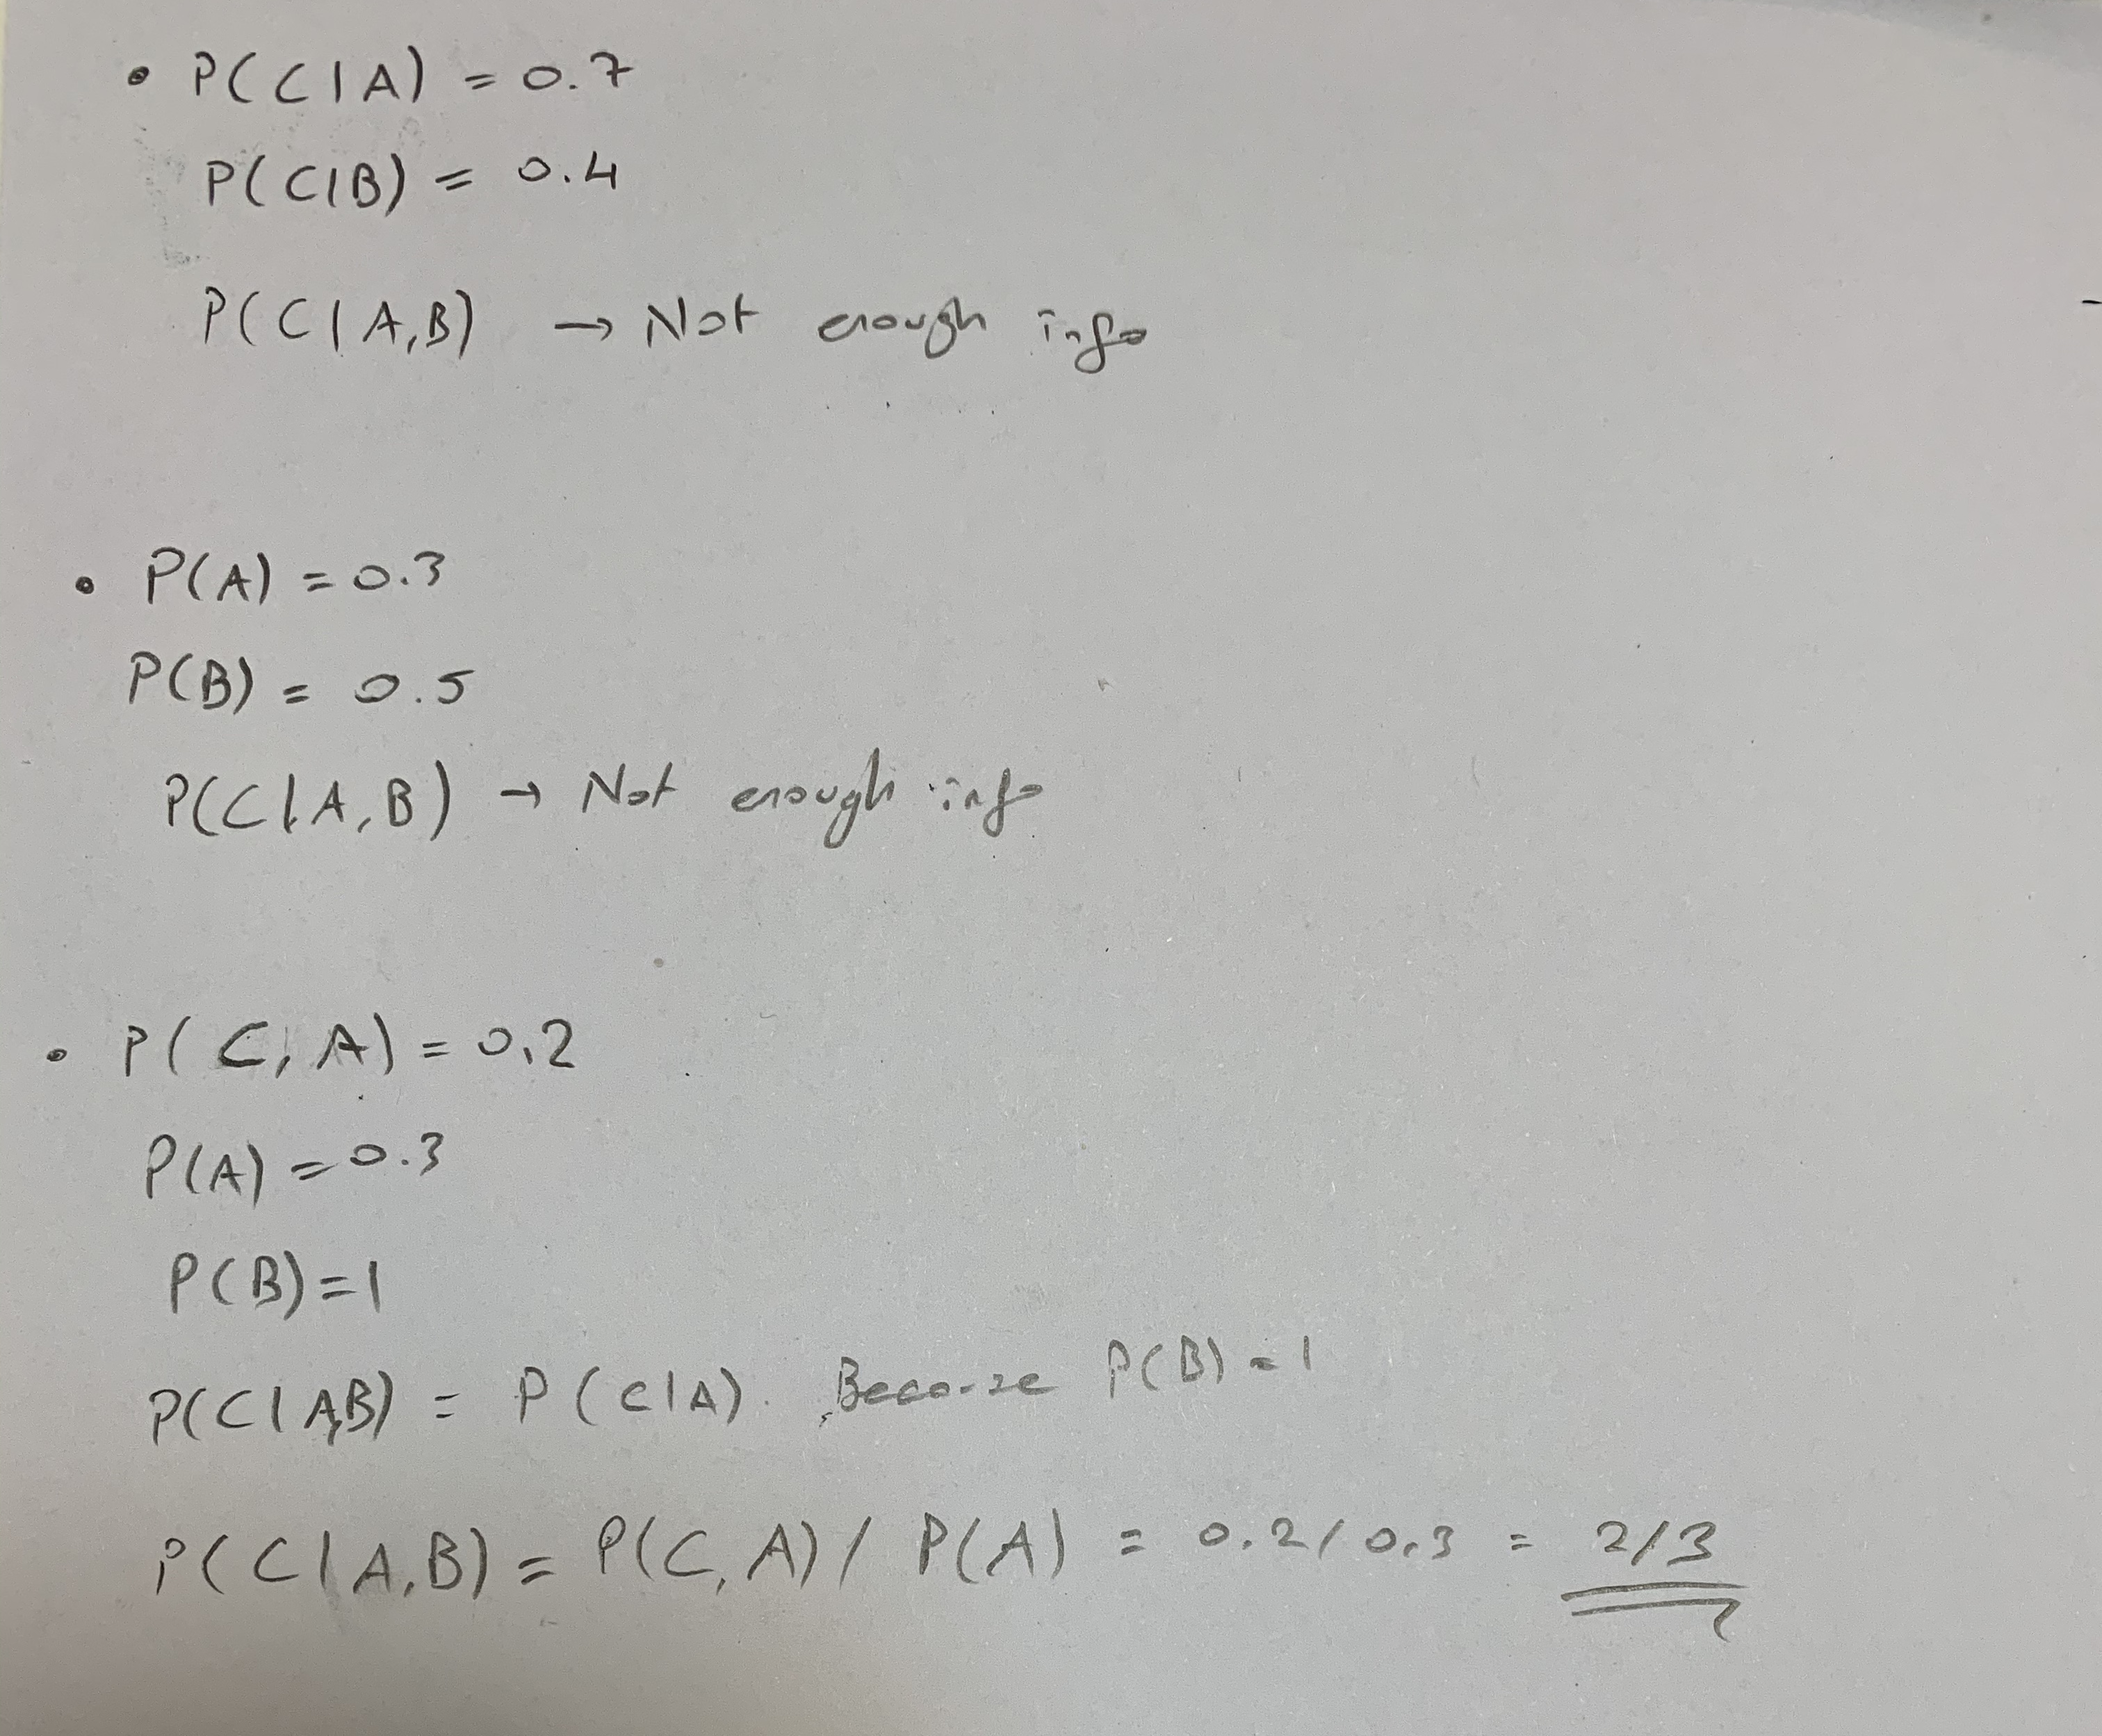 • P(C|A) = 0.7
P(C|B) = 0.4
P(C|A,B) → Not enough info
• P(A) = 0.3
P(B) = 0.5
P(C|A,B) → Not enough info
• P(C,A) = 0.2
P(A) = 0.3
P(B) = 1
P(C|A,B) = P(C|A). Because P(B) = 1
P(C|A,B) = P(C,A) / P(A) = 0.2/0.3 = 2/3